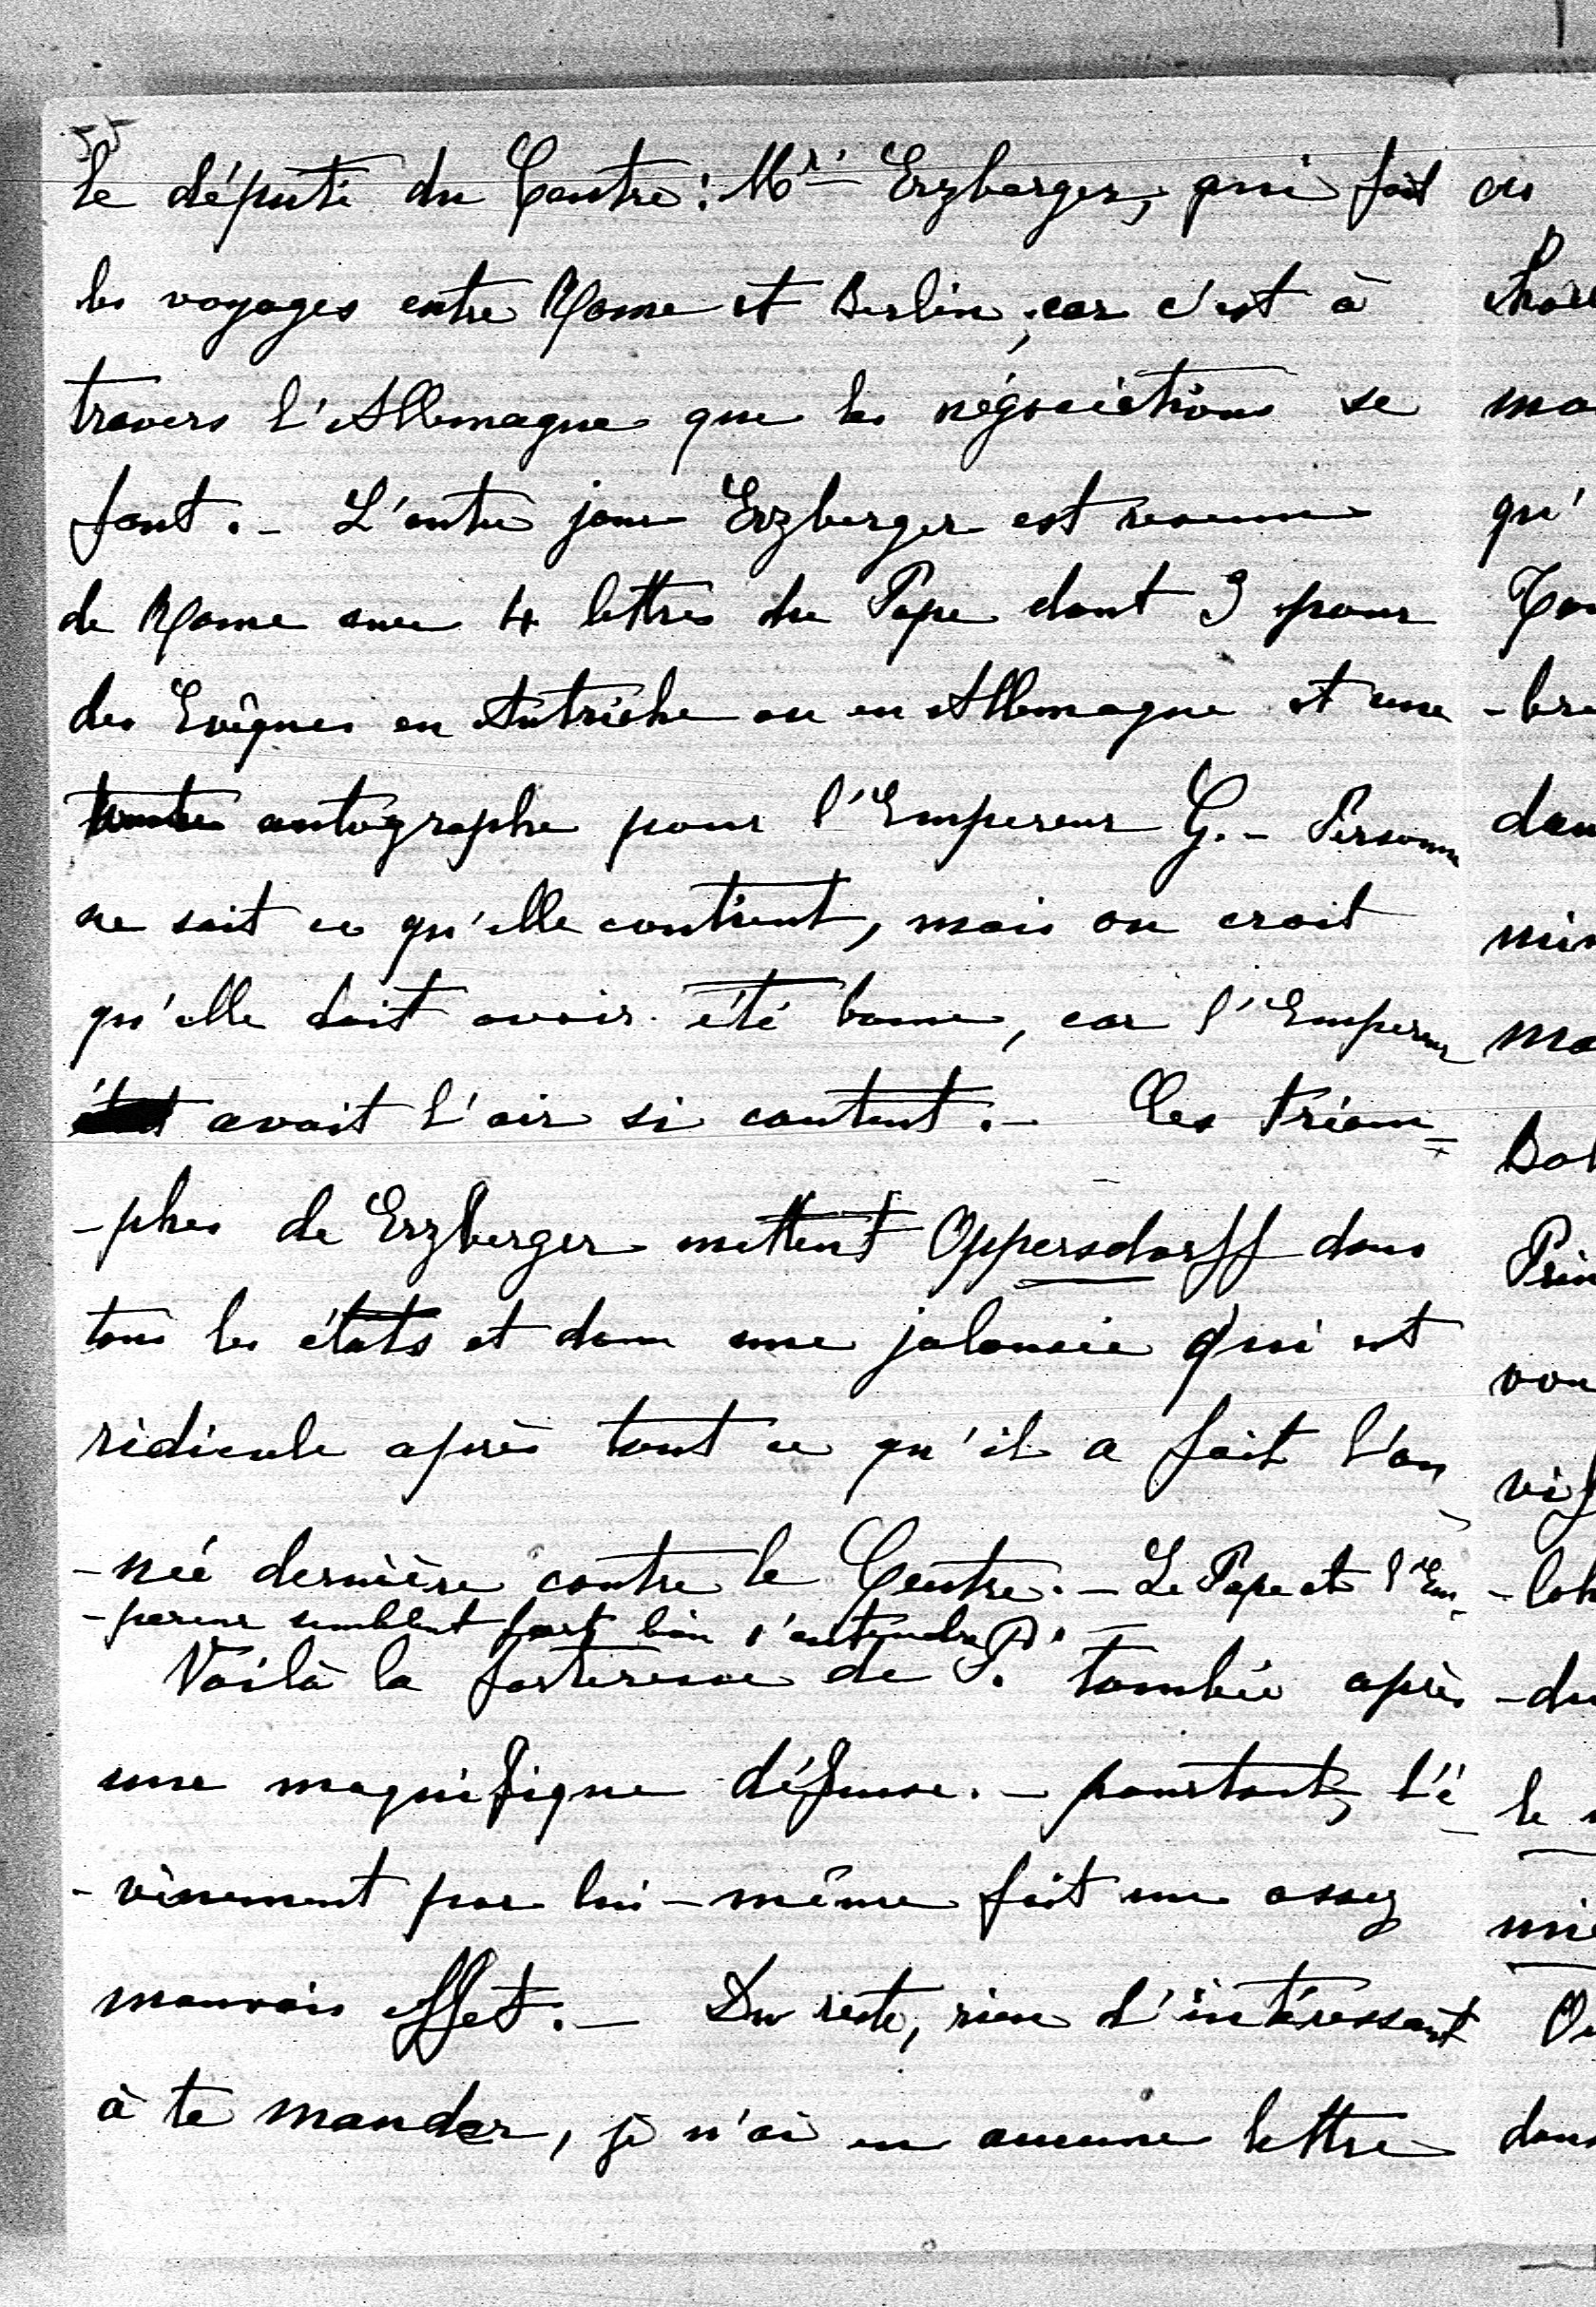 55
le député du Centre: Mr. Erzberger, qui fait
les voyages entre Rome et Berlin, car c'est à
travers l'Allemagne que les négociations se
font. - L'autre jour Erzberger est revenu
de Rome avec 4 lettres du Pape dont 3 pour
des Evêques en Autriche ou en Allemagne et une
autographe pour l'Empereur G. - Personne
ne sait ce qu'elle contient, mais on croit
qu'elle doit avoir été bonne, car l'Empereur
était avait l'air si content. - Ces triom=
-phes de Erzberger mettent Oppersdorff dans
tous les états et dans une jalousie qui est
ridicule après tout ce qu'il a fait l'an-
-née dernière contre le Centre. - Le Pape et l'Em-
-pereur semblent fort bien s'entendre.
Voilà la forteresse de P. tombée après
une magnifique défense. - pourtant, l'é-
-vènement par lui-même fait un assez
mauvais effet. - Du reste, rien d'intéressant
à te mander, je n'ai eu aucune lettre